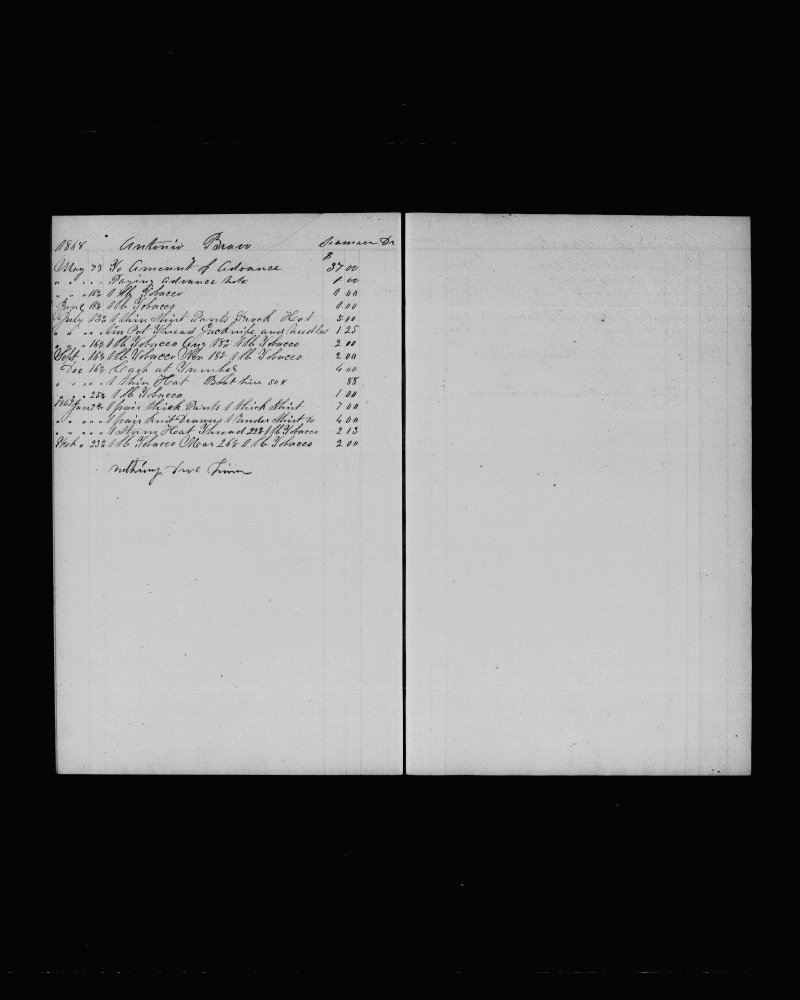 1864 Antonio Bravo Seaman Dr
$
May 73 To Amount of Advance 37 00
" " " " Paying Advance note 1 00
" " 16th 1 lb Tobacco 1 00
June 18th 1 lb Tobacco 1 00
July 13th 1 thin Shirt Pants Frock Hat 5 00
" " " " Tin Pot Thread Jacknife and Needles 1 25
" " 16th 1 lb Tobacco Aug 18th 1 lb Tobacco 2 00
Sept " 16th 1 lb Tobacco Nov 18th 1 lb Tobacco 2 00
Dec 16th Cash at Tumbez 4 00
" " " " 1 thin Hat Boat hire 50 88
" " " 25th 1 lb Tobacco 1 00
Jan 1 pair thick Pants 1 thick Shirt 7 00
" " " " 1 pair knit Drawers 1 under Shirt 4 00
" " " " 1 Hat Thread 1 lb Tobacco 2 13
Feb " 23rd 1 lb Tobacco Mar 26th 1 lb Tobacco 2 00
nothing due him